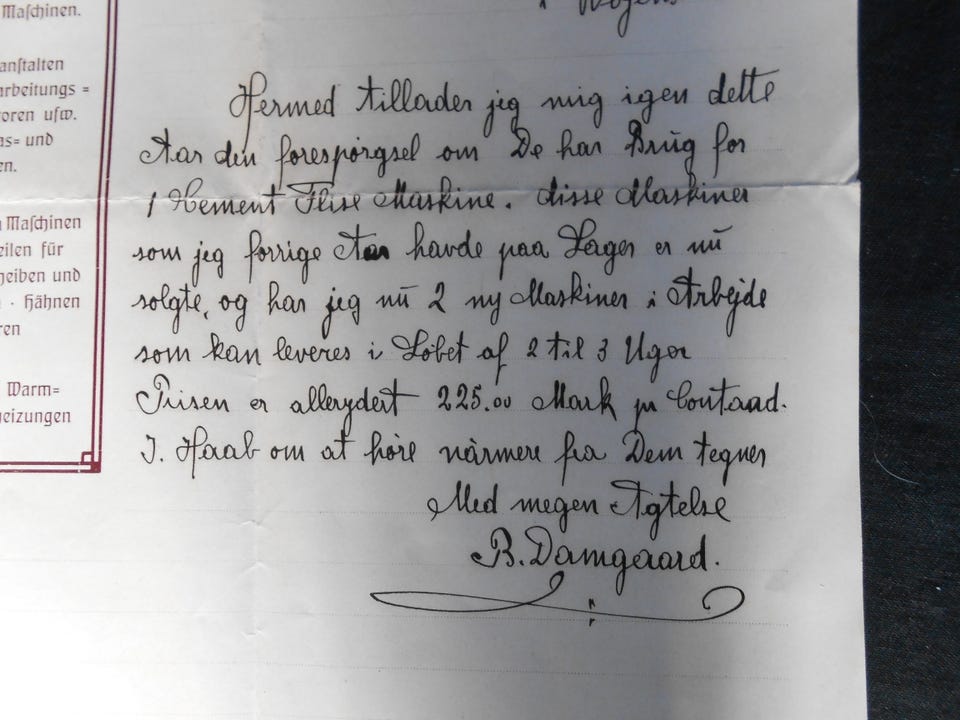 Maſchinen.
Wojens
anſtalten
arbeitungs =
oren uſw.
as= und
en.
Maſchinen
eilen für
heiben und
· Hähnen
ren
Warm=
heizungen
Hermed tillader jeg mig igen dette
Aar den forespørgsel om De har Brug for
1 Cement Flise Maskine. disse Maskiner
som jeg forrige Aar havde paa Lager er nu
solgte, og har jeg nu 2 ny Maskiner i Arbejde
som kan leveres i Løbet af 2 til 3 Uger
Prisen er allerydert 225.00 Mark pr Contand.
I. Haab om at høre närmere fra Dem tegner
Med megen Agtelse
B. Damgaard.